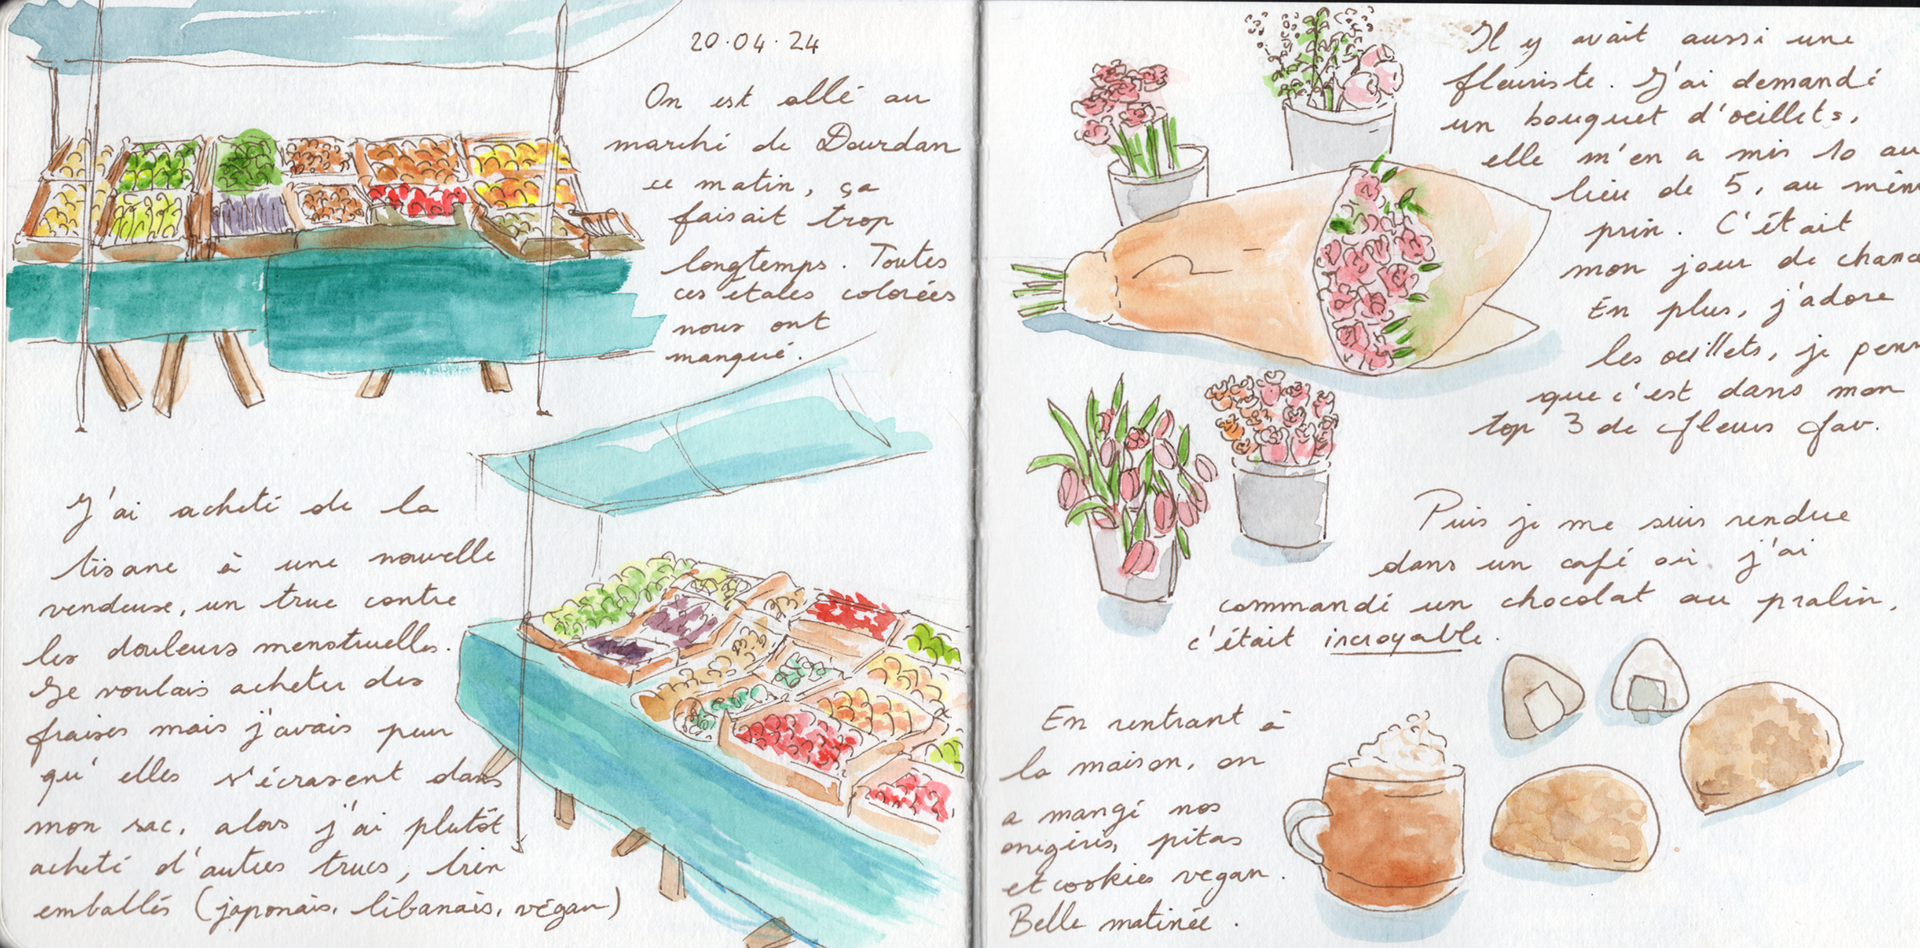 20.04.24
On est allé au
marché de Dourdan
ce matin, ça
faisait trop
longtemps. Toutes
ces étales colorées
nous ont
manqué.
J'ai acheté de la
tisane à une nouvelle
vendeuse, un truc contre
les douleurs menstruelles.
Je voulais acheter des
fraises mais j'avais peur
qu'elles s'écrasent dans
mon sac, alors j'ai plutôt
acheté d'autres trucs, bien
emballés (japonais, libanais, végan)
Il y avait aussi une
fleuriste. J'ai demandé
un bouquet d'oeillets,
elle m'en a mis 10 au
lieu de 5, au même
prix. C'était
mon jour de chance
En plus, j'adore
les oeillets, je pense
que c'est dans mon
top 3 de fleurs fav.
Puis je me suis rendue
dans un café où j'ai
commandé un chocolat au pralin,
c'était incroyable.
En rentrant à
la maison, on
a mangé nos
onigiris, pitas
et cookies vegan.
Belle matinée.